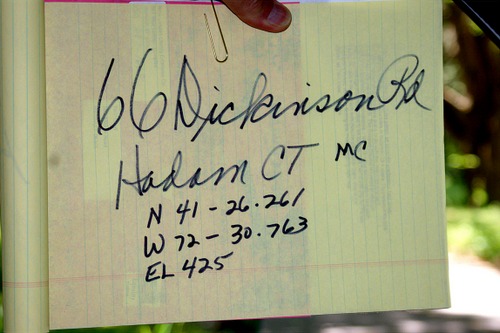 66 Dickinson Rd
Hadam CT MC
N 41 - 26.261
W 72 - 30.763
EL 425